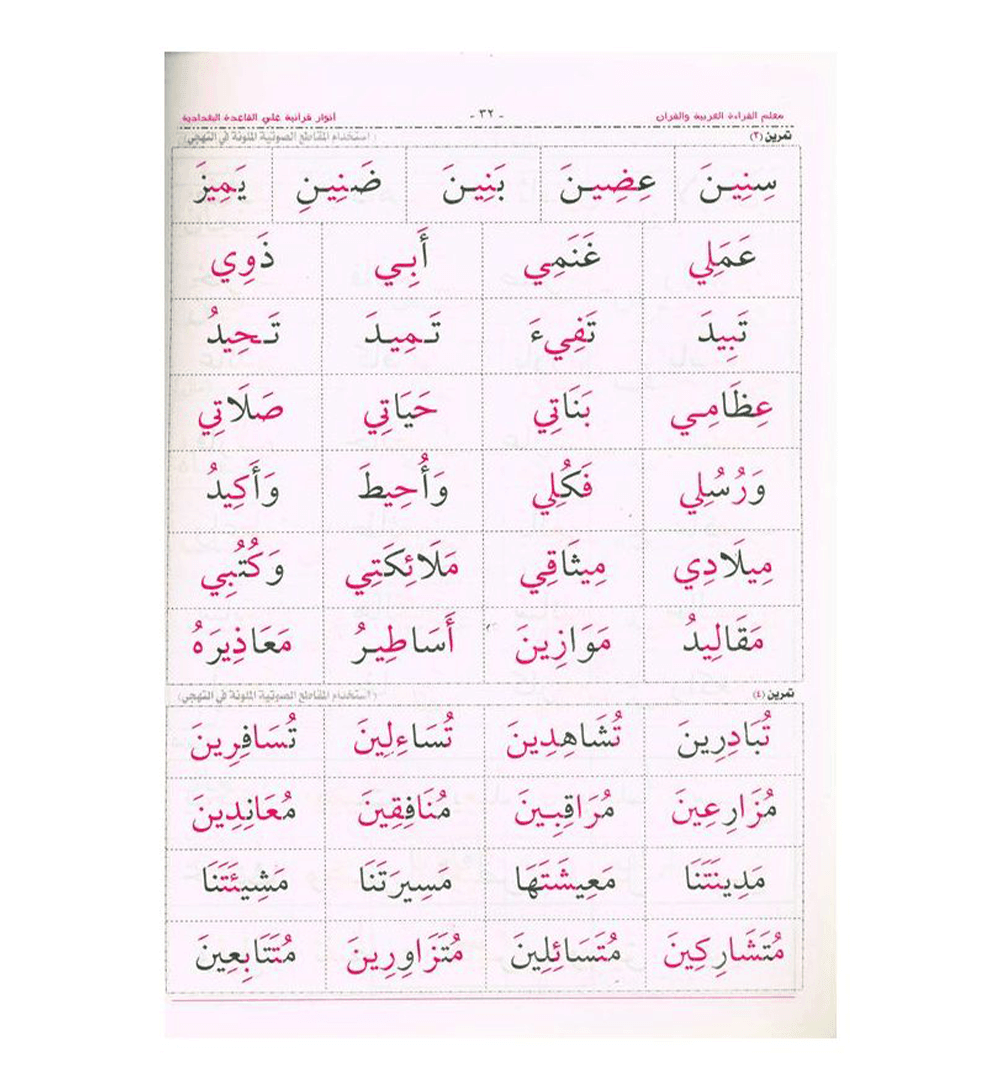 معلم القراءة العربية والقرآن - ٣٢ - أنوار قرآنية على القاعدة البغدادية
تمرين (٣) (استخدام المقاطع الصوتية الملونة في التهجي)
سِنِيـنَ عِضِيـنَ بَنِيـنَ ضَنِيـنِ يَمِيزَ
عَمَلِي غَنَمِي أَبِـي ذَوِي
تَبِيدَ تَفِيءَ تَـمِيـدَ تَـحِيدُ
عِظَامِـي بَنَاتِي حَيَاتِي صَلَاتِي
وَرُسُلِي فَكُلِي وَأُحِيطَ وَأَكِيدُ
مِيلَادِي مِيثَاقِي مَلَائِكَتِي وَكُتُبِي
مَقَالِيدُ مَوَازِينَ أَسَاطِيـرُ مَعَاذِيرَهُ
تمرين (٤) (استخدام المقاطع الصوتية الملونة في التهجي)
تُبَادِرِينَ تُشَاهِدِينَ تُسَاءِلِينَ تُسَافِرِينَ
مُزَارِعِينَ مُرَاقِبِـينَ مُنَافِقِينَ مُعَانِدِينَ
مَدِينَتَنَا مَعِيشَتَهَا مَسِيرَتَنَا مَشِيئَتَنَا
مُتَشَارِكِينَ مُتَسَائِلِينَ مُتَزَاوِرِينَ مُتَتَابِعِينَ